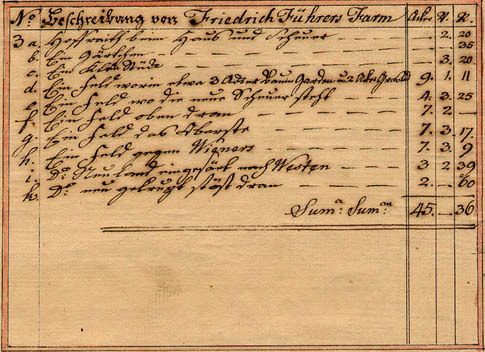 No. Beschreibung von Friedrich Führers Farm Aker V. R.
3 a. Hoffreith beym Haus und Scheuer — — 2. 20
b. Ein Gärtchen — — — — 35
c. Ein — — — 3. 20
d. Ein Feld worin etwa 3 Acker Baum Garden u. 2 Aker 9. 1. 11
e. Ein Feld wo die neue Scheuer steht — 4. 3. 25
f. Ein Feld oben dran — — — 7. 2 —
g. Ein Feld das Oberste — — — 7. 3. 17.
h. Ein Feld gegen Wigners — — — 7. 3. 9
i. Do. Neu Land eingesäet nach Westen — 3 2 39
k. Do. neu stöst dran — — — 2. . 60
Suma. Sumom: 45. . 36